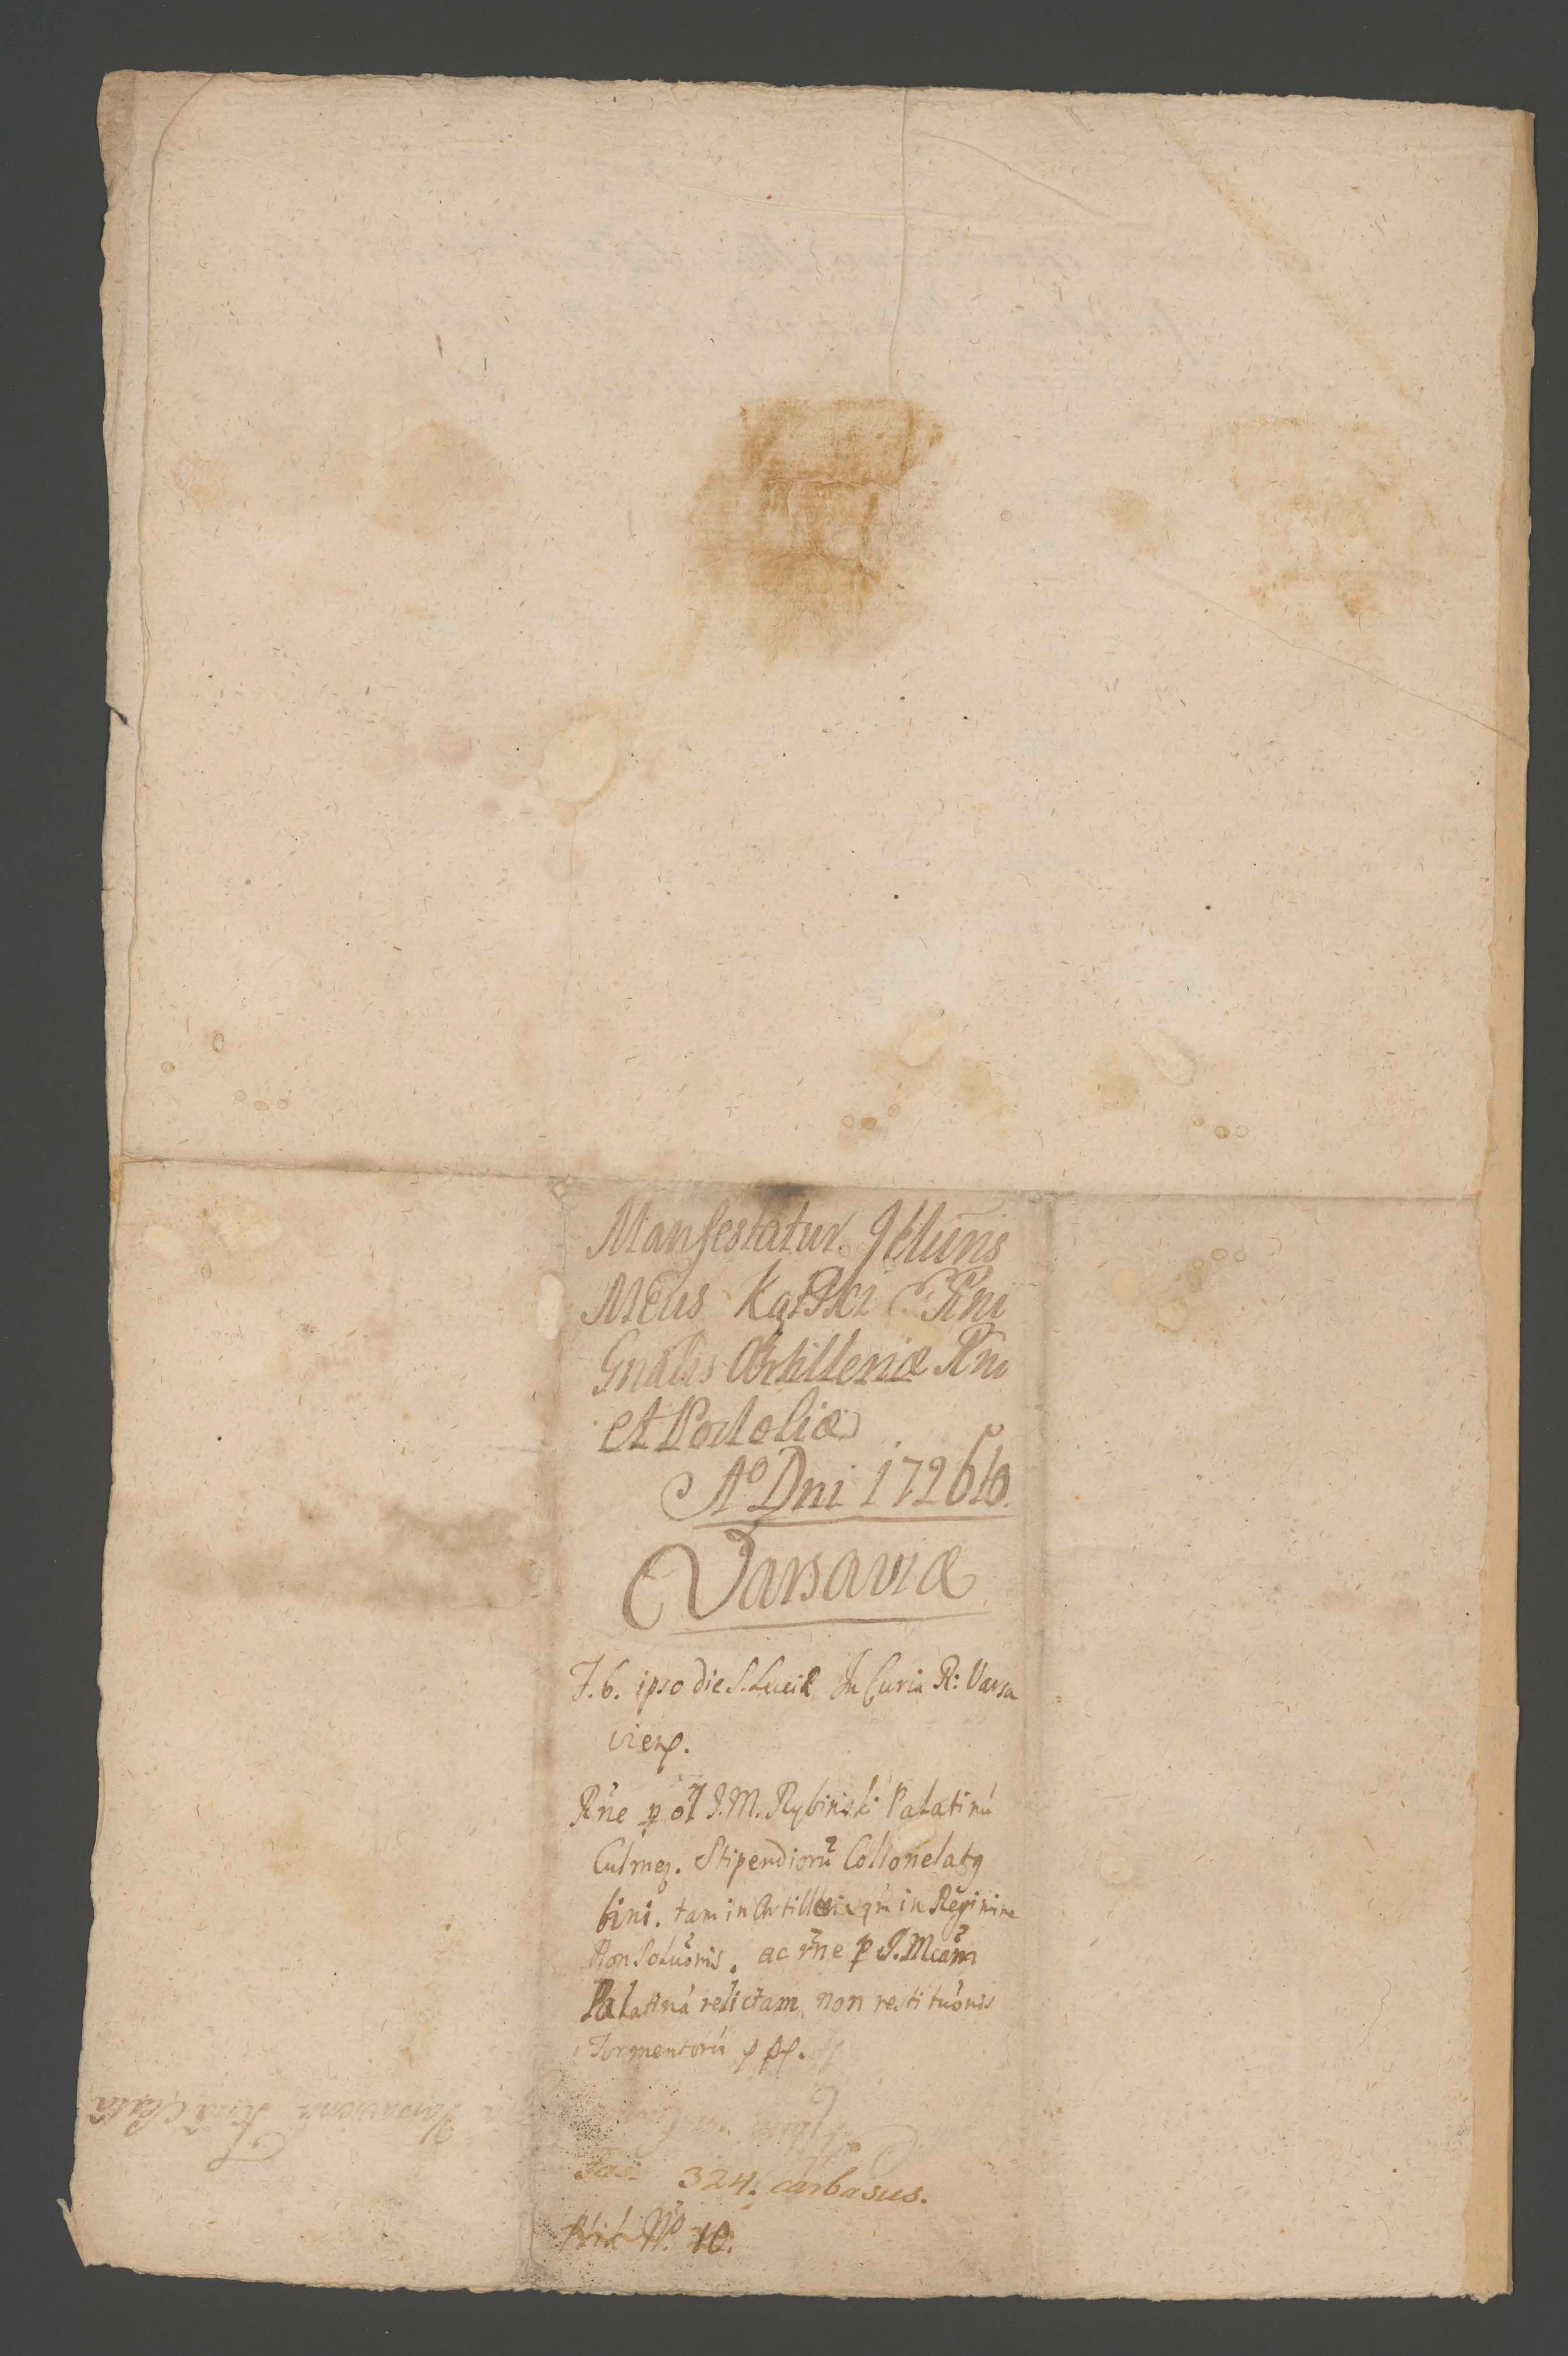 Manfestatur Illuris
Mcus Kątski
Gnalis Artilleriæ Rni
et Podoliæ
Aº Dni 1726to
Varsaviæ
F. 6. ipso die S. Luciæ In Curia R: Varsa
viens.
Rne p ol J.M. Rybinski Palatinú
Culmen. Stipendiorú Collonelatg
bini. tam in Artilleria qm in Regimine
Non Soluõnis. ac rne p J. Mcam
Palatiná relictam non restituõnis
Tormentorú
Fas: 324. carbasus.
Hic Nº. 10.